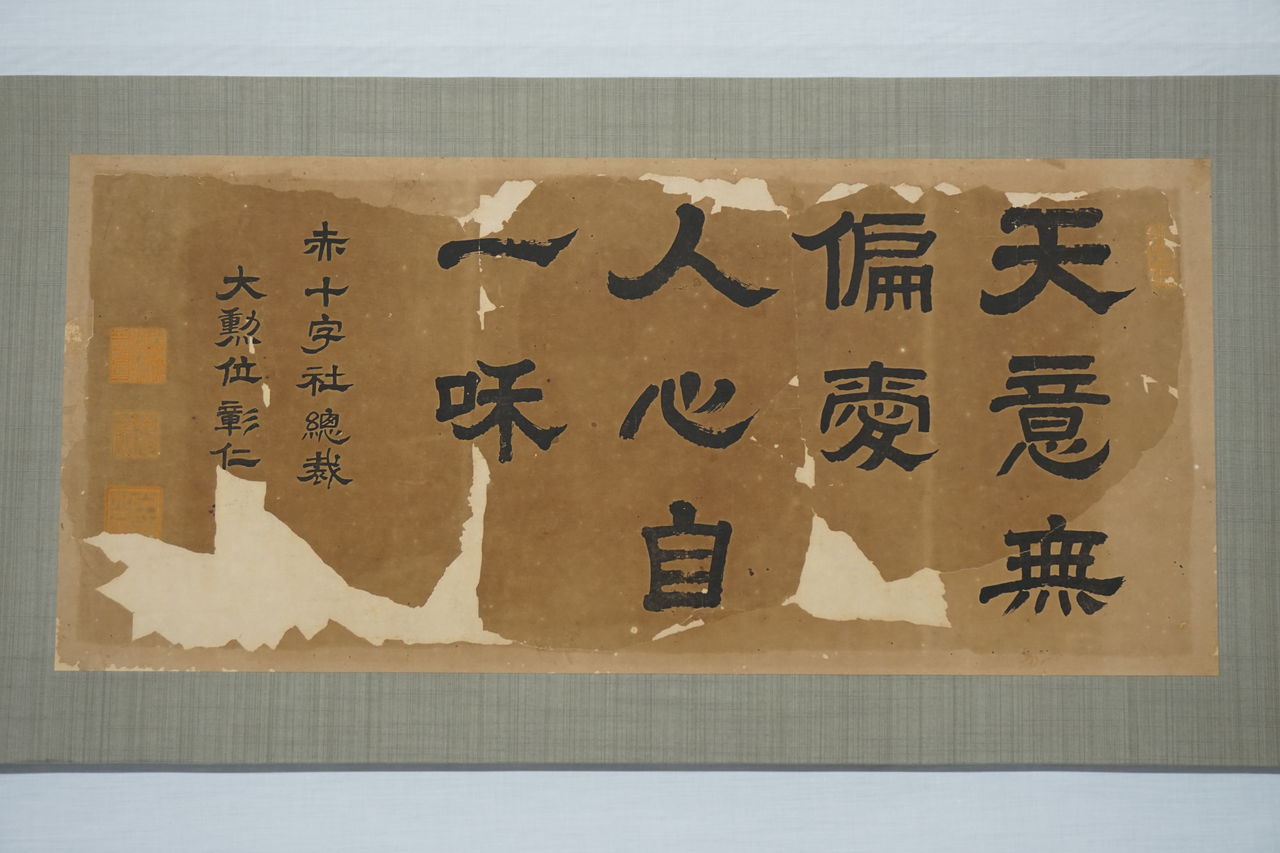 天意無
偏愛
人心自
一咊
赤十字社總裁
大勳位彰仁